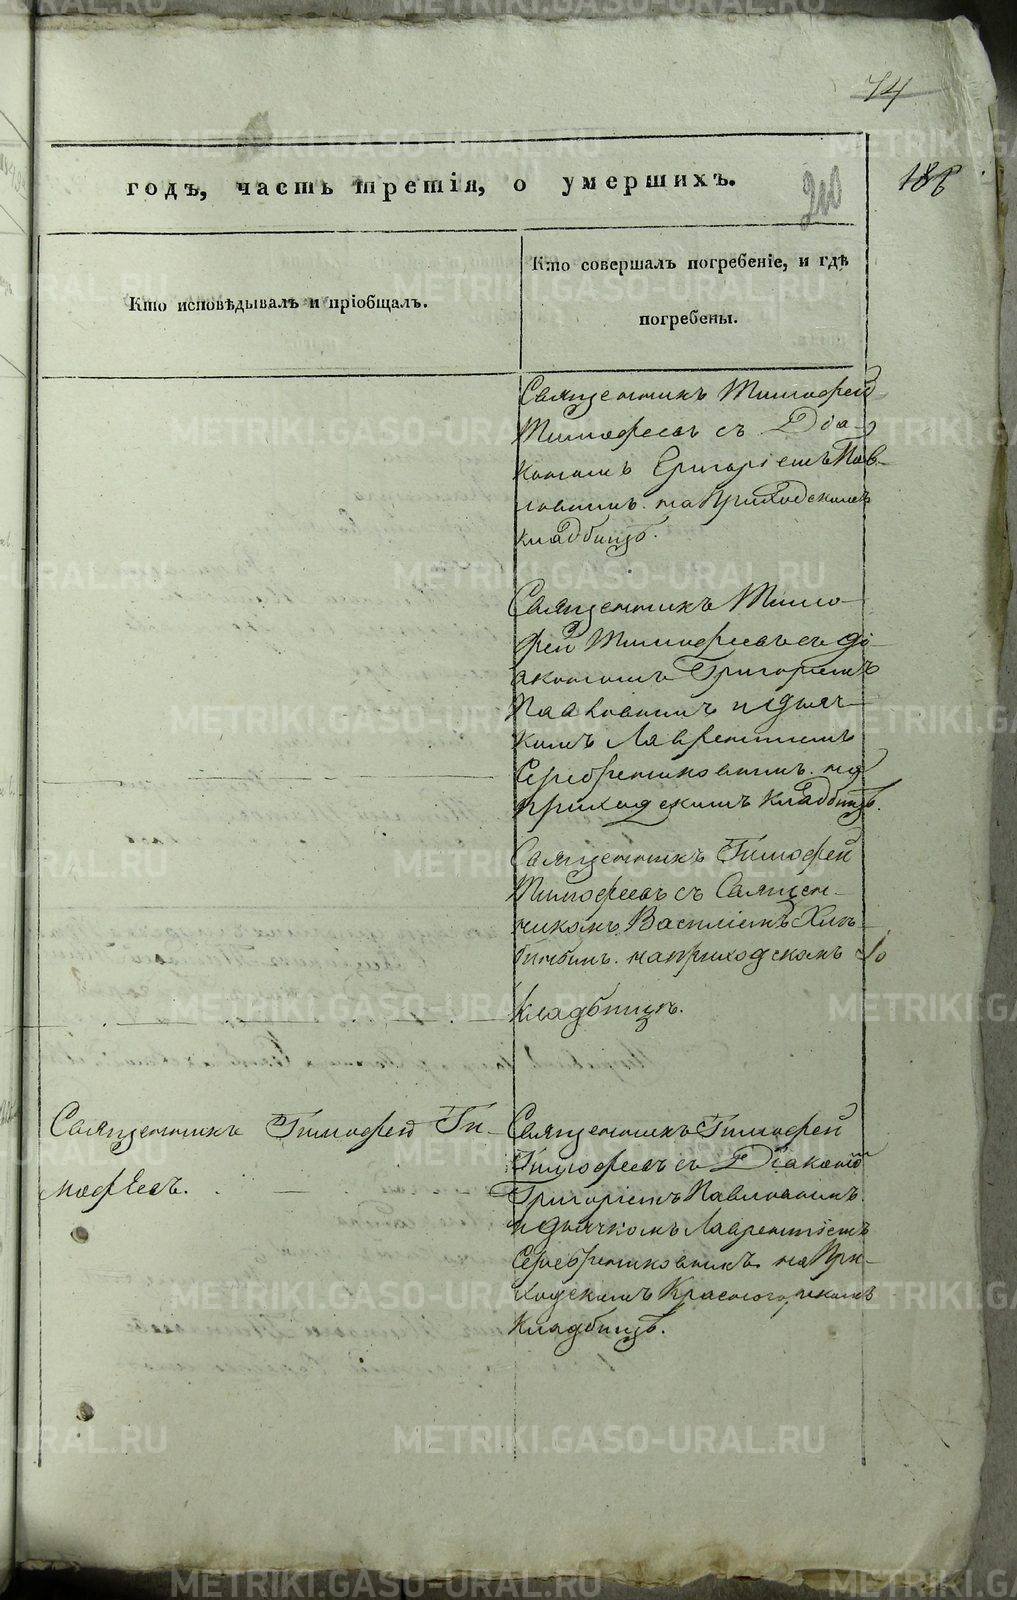 74
годъ, часть третія, о умершихъ.
210
186
Кто исповѣдывалъ и пріобщалъ.
Кто совершалъ погребеніе, и гдѣ
погребены.
Священникъ Тимофей
Тимофеевъ съ Діа-
кономъ Григоріемъ Пав-
ловымъ. на Приходскомъ
кладбищѣ.
Священникъ Тимо-
фей Тимофеевъ съ Ді-
акономъ Григоріемъ
Павловымъ и дьяч-
комъ Лаврентіемъ
Серебрениковымъ. на
приходскомъ кладбищѣ.
Священникъ Тимофей
Тимофеевъ съ Священ-
никомъ Василіемъ
на приходскомъ
кладбищѣ.
Священникъ Тимофей Ти-
мофѣевъ.
Священникъ Тимофей
Тимофеевъ съ Діакономъ
Григоріемъ Павловымъ.
и дьячкомъ Лаврентіемъ
Серебрениковымъ. на При-
ходскомъ Красногорскомъ
Кладбищѣ.
METRIKI.GASO-URAL.RU